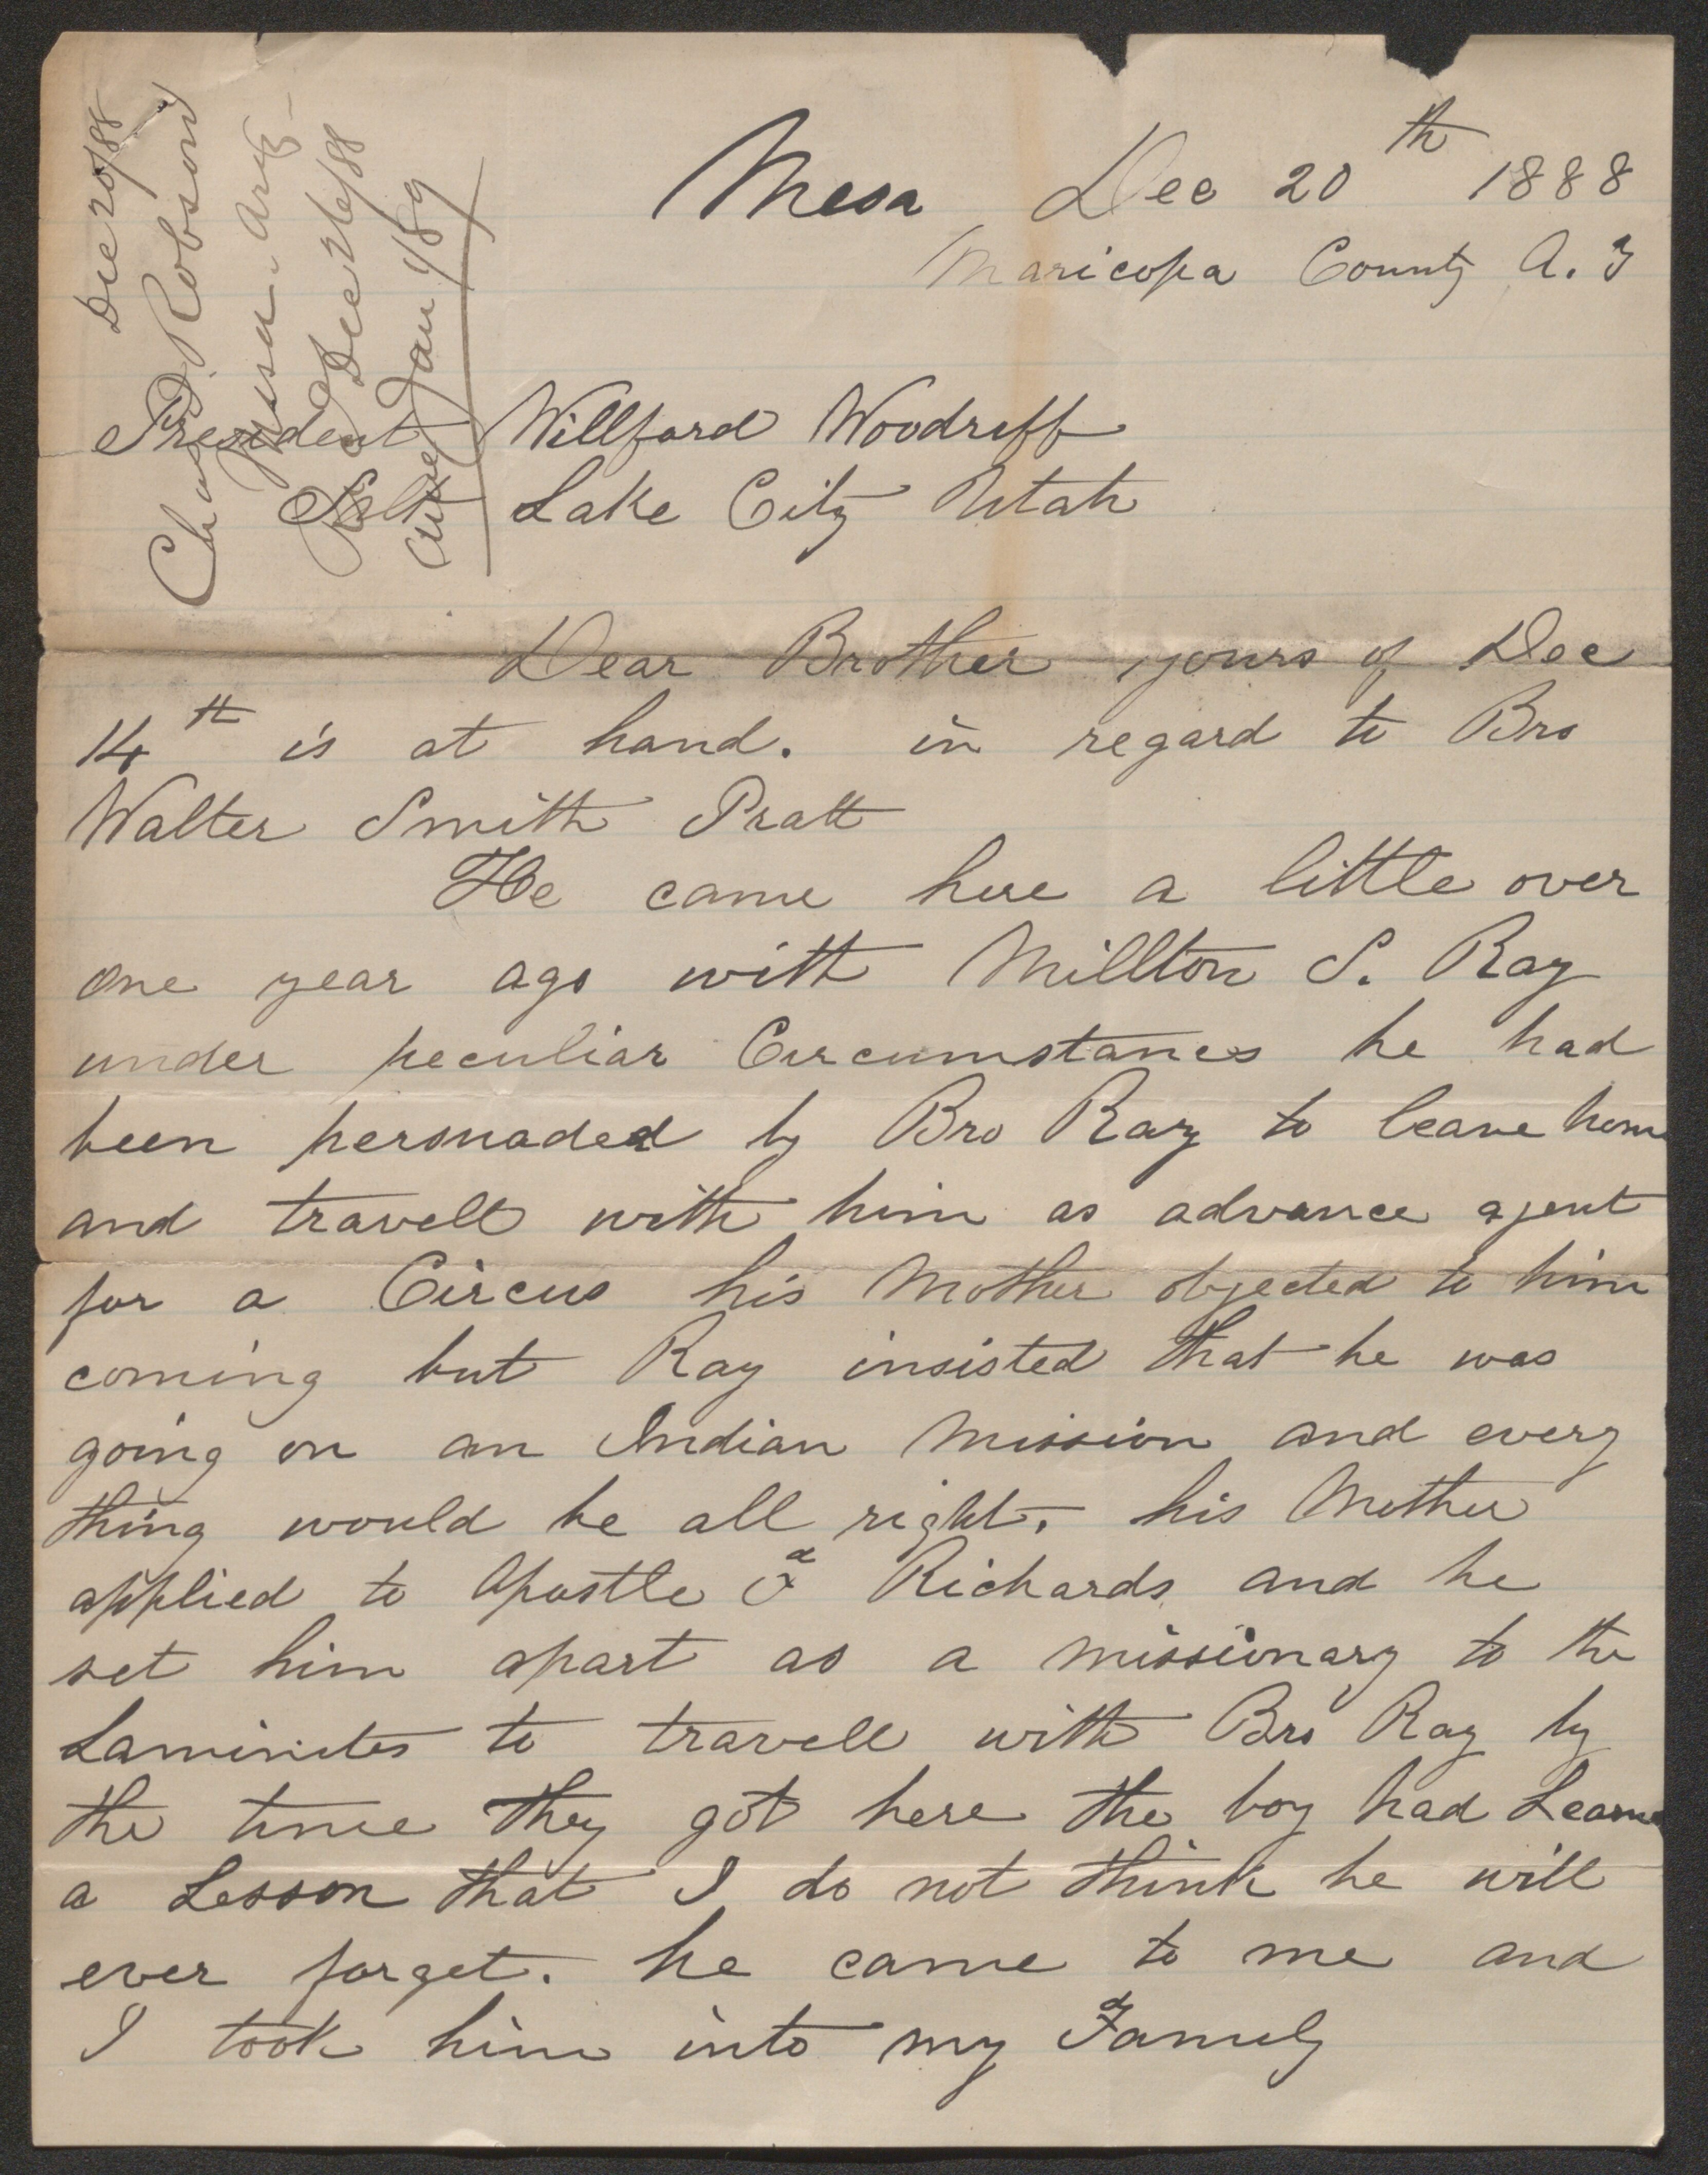 Dec 20/88
Chas. I. Robson
Mesa. Ariz
Rec Dec 26/88
Ans Jan 1/89
Mesa Dec 20th 1888
Maricopa County A. T
President Willford Woodruff
Salt Lake City Utah
Dear Brother yours of Dec
14th is at hand. in regard to Bro
Walter Smith Pratt
He came here a little over
one year ago with Millton S. Ray
under peculiar Circumstances he had
been persuaded by Bro Ray to leave home
and travell with him as advance agent
for a Circus his Mother objected to him
coming but Ray insisted that he was
going on an Indian Mission and every
thing would be all right. his Mother
applied to Apostle F Richards and he
set him apart as a missionary to the
Laminites to travell with Bro Ray by
the time they got here the boy had Learned
a Lesson that I do not think he will
ever forget. he came to me and
I took him into my Family